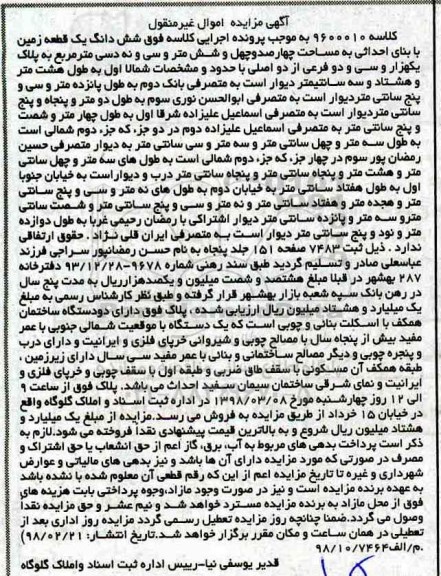 آگهی مزایده اموال غیرمنقول
کلاسه ۹۶۰۰۰۱۰ به موجب پرونده اجرایی کلاسه فوق شش دانگ یک قطعه زمین
با بنای احداثی به مساحت چهارصدوچهل و شش متر و سی و نه دسی مترمربع به پلاک
یکهزار و سی و دو فرعی از دو اصلی با حدود و مشخصات شمالا اول به طول هشت متر
و هشتاد و سه سانتیمتر دیوار است به متصرفی بانک دوم به طول پانزده متر و سی و
پنج سانتی متردیوار است به متصرفی ابوالحسن نوری سوم به طول دو متر و پنجاه و پنج
سانتی متردیوار است به متصرفی اسماعیل علیزاده شرقا اول به طول چهار متر و شصت
و پنج سانتی متر به متصرفی اسماعیل علیزاده دوم در دو جز، که جز، دوم شمالی است
به طول سه متر و چهل سانتی متر و سه متر و سی سانتی متر به دیوار متصرفی حسین
رمضان پور سوم در چهار جز، که جز، دوم شمالی است به طول های سه متر و چهل سانتی
متر و هشت متر و پنجاه سانتی متر و پنجاه سانتی متر درب و دیواراست به خیابان جنوبا
اول به طول هفتاد سانتی متر به خیابان دوم به طول های نه متر و سی و پنج سانتی
متر و هجده متر و هفتاد سانتی متر و نه متر و سی و پنج سانتی متر و شصت سانتی
مترو سه متر و پانزده سانتی متر دیوار اشتراکی با رمضان رحیمی غربا به طول دوازده
متر و نود و پنج سانتی متر دیوار است به متصرفی ایران قلی نژاد. حقوق ارتفاقی
ندارد . ذیل ثبت ۷۴۸۳ صفحه ۱۵۱ جلد پنجاه به نام حسن رمضانپور سراجی فرزند
عباسعلی صادر و تسلیم گردید طبق سند رهنی شماره ۹۶۷۸-۹۳/۱۲/۲۸ دفترخانه
۲۸۷ بهشهر در قبلا مبلغ هشتصد و شصت میلیون و یکصدهزارریال به مدت پنج سال
در رهن بانک سپه شعبه بازار بهشهر قرار گرفته و طبق نظر کارشناس رسمی به مبلغ
یک میلیارد و هشتاد میلیون ریال ارزیابی شده ، پلاک فوق دارای دودستگاه ساختمان
همکف با اسکلت بنائی و چوبی است که یک دستگاه با موقعیت شمالی جنوبی با عمر
مفید بیش از پنجاه سال با مصالح چوبی و شیروانی خرپای فلزی و ایرانیت و دارای درب
و پنجره چوبی و دیگر مصالح ساختمانی و بنائی با عمر مفید سی سال دارای زیرزمین ،
طبقه همکف آن مسکونی با سقف طاق ضربی و طبقه اول با سقف چوبی و خرپای فلزی و
ایرانیت و نمای شرقی ساختمان سیمان سفید احداث می باشد. پلاک فوق از ساعت ۹
الی ۱۲ روز چهارشنبه مورخ ۱۳۹۸/۰۳/۰۸ در اداره ثبت اسناد و املاک گلوگاه واقع
در خیابان ۱۵ خرداد از طریق مزایده به فروش می رسد.مزایده از مبلغ یک میلیارد و
هشتاد میلیون ریال شروع و به بالاترین قیمت پیشنهادی نقدا فروخته می شود.لازم به
ذکر است پرداخت بدهی های مربوط به آب، برق، گاز اعم از حق انشعاب یا حق اشتراک و
مصرف در صورتی که مورد مزایده دارای آن ها باشد و نیز بدهی های مالیاتی و عوارض
شهرداری و غیره تا تاریخ مزایده اعم از این که رقم قطعی آن معلوم شده یا نشده باشد
به عهده برنده مزایده است و نیز در صورت وجود مازاد،وجوه پرداختی بابت هزینه های
فوق از محل مازاد به برنده مزایده مسترد خواهد شد و نیم عشر و حق مزایده نقدا
وصول می گردد.ضمنا چنانچه روز مزایده تعطیل رسمی گردد مزایده روز اداری بعد از
تعطیلی در همان ساعت و مکان مقرر برگزار خواهد شد.تاریخ انتشار: ۹۸/۰۲/۲۱)
.م/الف۹۸/۱۰/۷۴۶۴
قدیر یوسفی نیا-رییس اداره ثبت اسناد واملاک گلوگاه